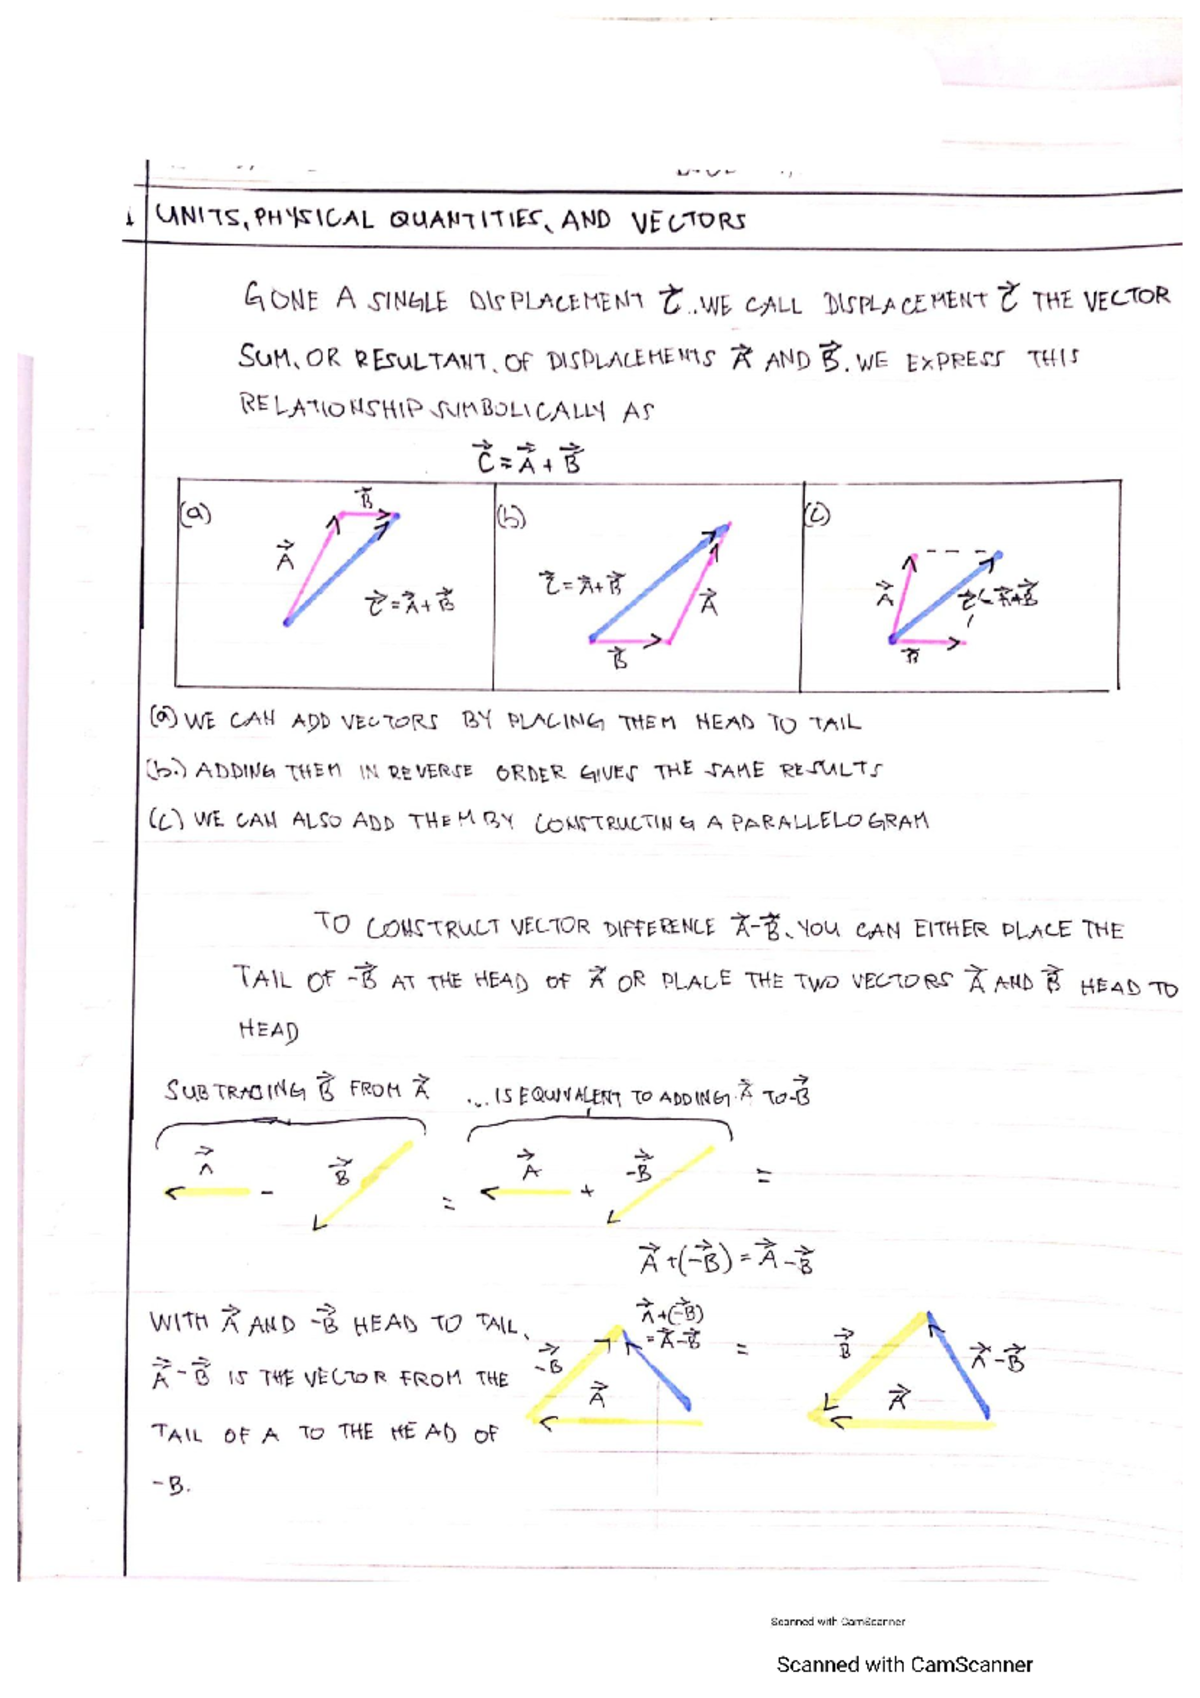 1 UNITS, PHYSICAL QUANTITIES, AND VECTORS
GONE A SINGLE DISPLACEMENT C⃗. WE CALL DISPLACEMENT C⃗ THE VECTOR
SUM, OR RESULTANT, OF DISPLACEMENTS A⃗ AND B⃗. WE EXPRESS THIS
RELATIONSHIP SUMBOLICALLY AS
C⃗ = A⃗ + B⃗
(a) B⃗ A⃗ C⃗ = A⃗ + B⃗
(b) C⃗ = A⃗ + B⃗ A⃗ B⃗
(c) A⃗ C⃗ = A⃗ + B⃗ B⃗
(a) WE CAN ADD VECTORS BY PLACING THEM HEAD TO TAIL
(b.) ADDING THEM IN REVERSE ORDER GIVES THE SAME RESULTS
(c) WE CAN ALSO ADD THEM BY CONSTRUCTING A PARALLELOGRAM
TO CONSTRUCT VECTOR DIFFERENCE A⃗-B⃗, YOU CAN EITHER PLACE THE
TAIL OF -B⃗ AT THE HEAD OF A⃗ OR PLACE THE TWO VECTORS A⃗ AND B⃗ HEAD TO
HEAD
SUBTRACING B⃗ FROM A⃗ ... IS EQUIVALENT TO ADDING A⃗ TO -B⃗
A⃗ - B⃗ = A⃗ + -B⃗ =
A⃗ + (-B⃗) = A⃗ - B⃗
WITH A⃗ AND -B⃗ HEAD TO TAIL,
A⃗ - B⃗ IS THE VECTOR FROM THE
TAIL OF A TO THE HEAD OF
-B.
A⃗+(-B⃗)
= A⃗-B⃗
-B⃗ A⃗ = B⃗ A⃗ A⃗-B⃗
Scanned with CamScanner
Scanned with CamScanner